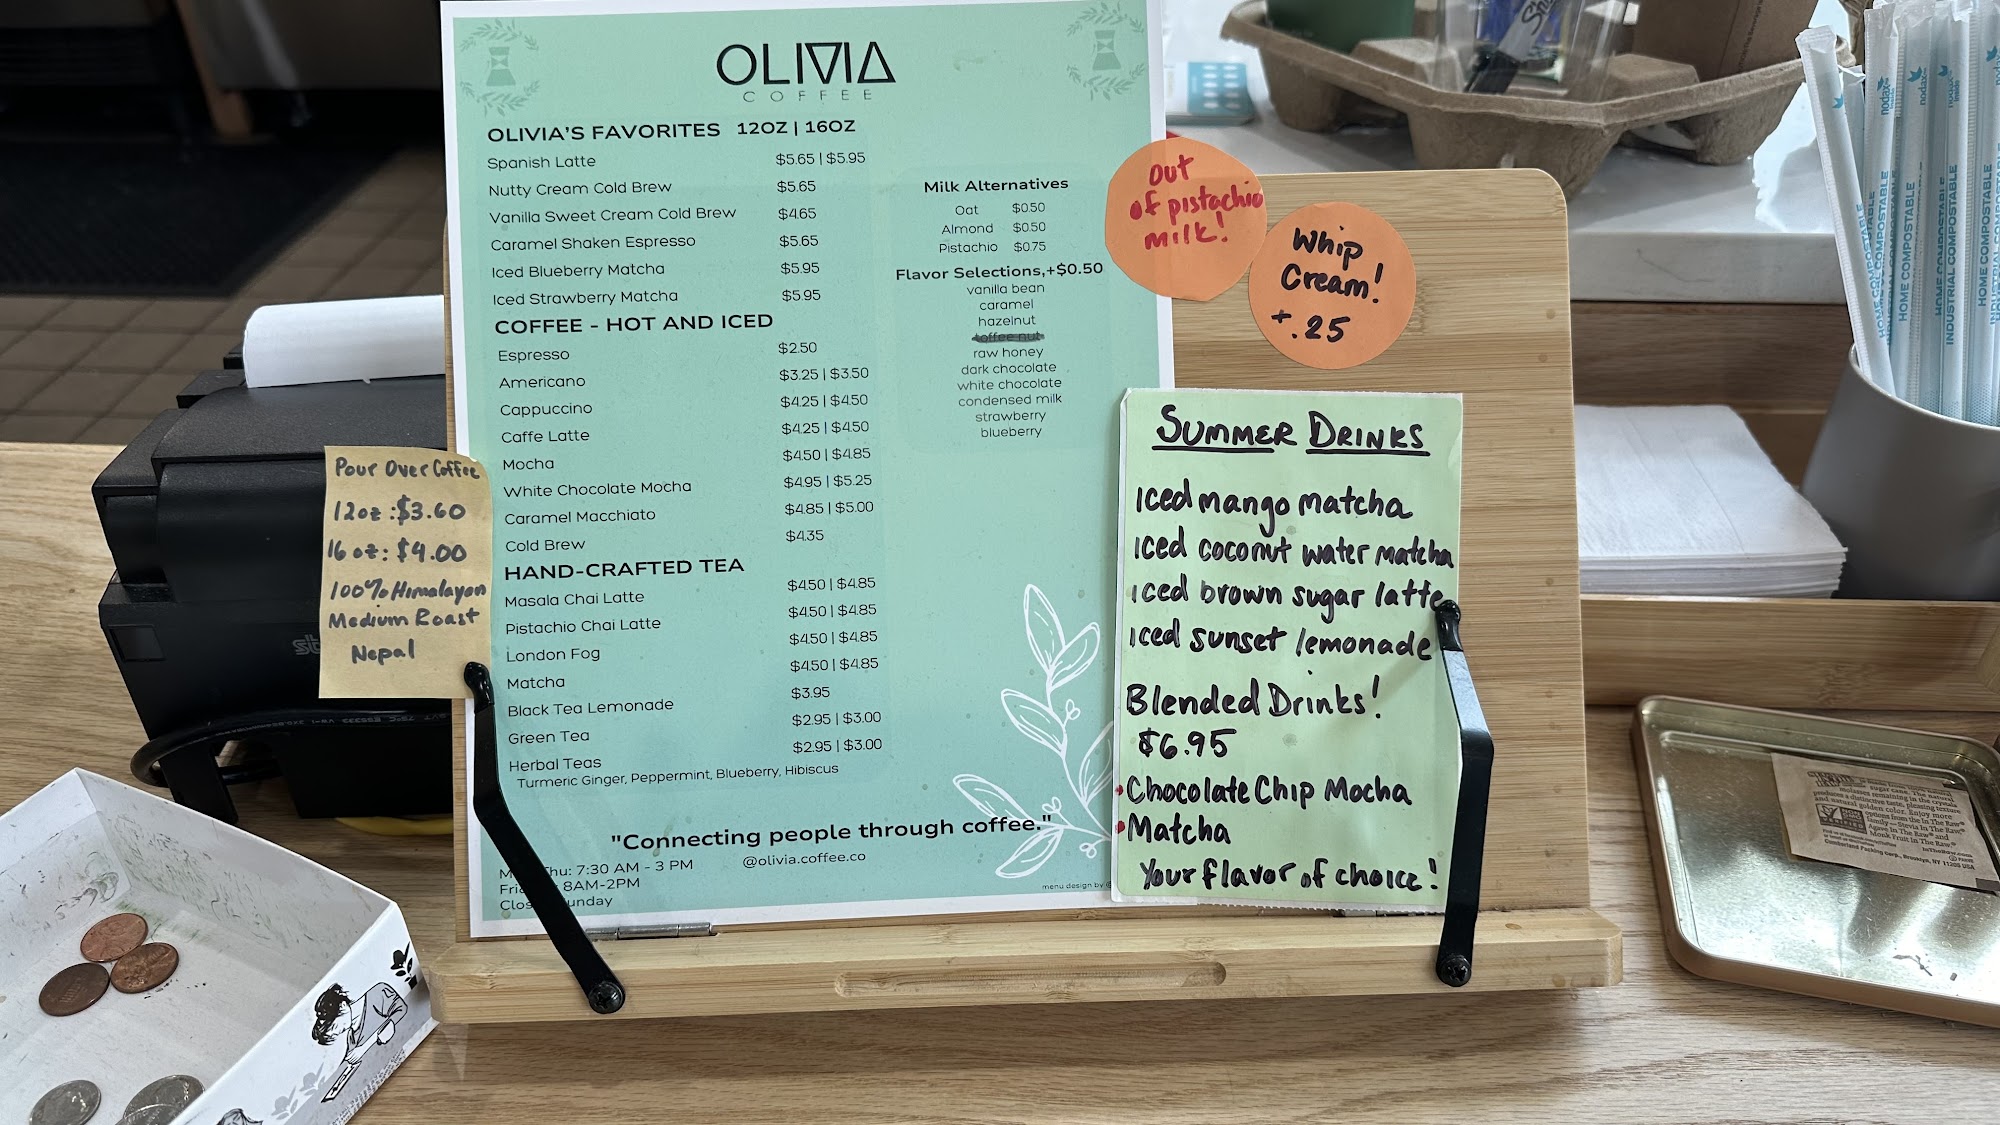 OLIVIA
COFFEE
OLIVIA'S FAVORITES 12OZ | 16OZ
Spanish Latte $5.65 | $5.95
Nutty Cream Cold Brew $5.65
Vanilla Sweet Cream Cold Brew $4.65
Caramel Shaken Espresso $5.65
Iced Blueberry Matcha $5.95
Iced Strawberry Matcha $5.95
COFFEE - HOT AND ICED
Espresso $2.50
Americano $3.25 | $3.50
Cappuccino $4.25 | $4.50
Caffe Latte $4.25 | $4.50
Mocha $4.50 | $4.85
White Chocolate Mocha $4.95 | $5.25
Caramel Macchiato $4.85 | $5.00
Cold Brew $4.35
HAND-CRAFTED TEA
Masala Chai Latte $4.50 | $4.85
Pistachio Chai Latte $4.50 | $4.85
London Fog $4.50 | $4.85
Matcha $4.50 | $4.85
Black Tea Lemonade $3.95
Green Tea $2.95 | $3.00
Herbal Teas $2.95 | $3.00
Turmeric Ginger, Peppermint, Blueberry, Hibiscus
Milk Alternatives
Oat $0.50
Almond $0.50
Pistachio $0.75
Flavor Selections,+$0.50
vanilla bean
caramel
hazelnut
toffee nut
raw honey
dark chocolate
white chocolate
condensed milk
strawberry
blueberry
"Connecting people through coffee."
@olivia.coffee.co
Thu: 7:30 AM - 3 PM
8AM-2PM
menu design by
Out
of pistachio
milk!
Whip
Cream!
+.25
Pour Over Coffee
12oz: $3.60
16oz: $4.00
100% Himalayan
Medium Roast
Nepal
SUMMER DRINKS
Iced mango matcha
Iced coconut water matcha
Iced brown sugar latte
Iced sunset lemonade
Blended Drinks!
$6.95
• Chocolate Chip Mocha
• Matcha
Your flavor of choice!
HOME COMPOSTABLE
INDUSTRIAL COMPOSTABLE
HOME COMPOSTABLE